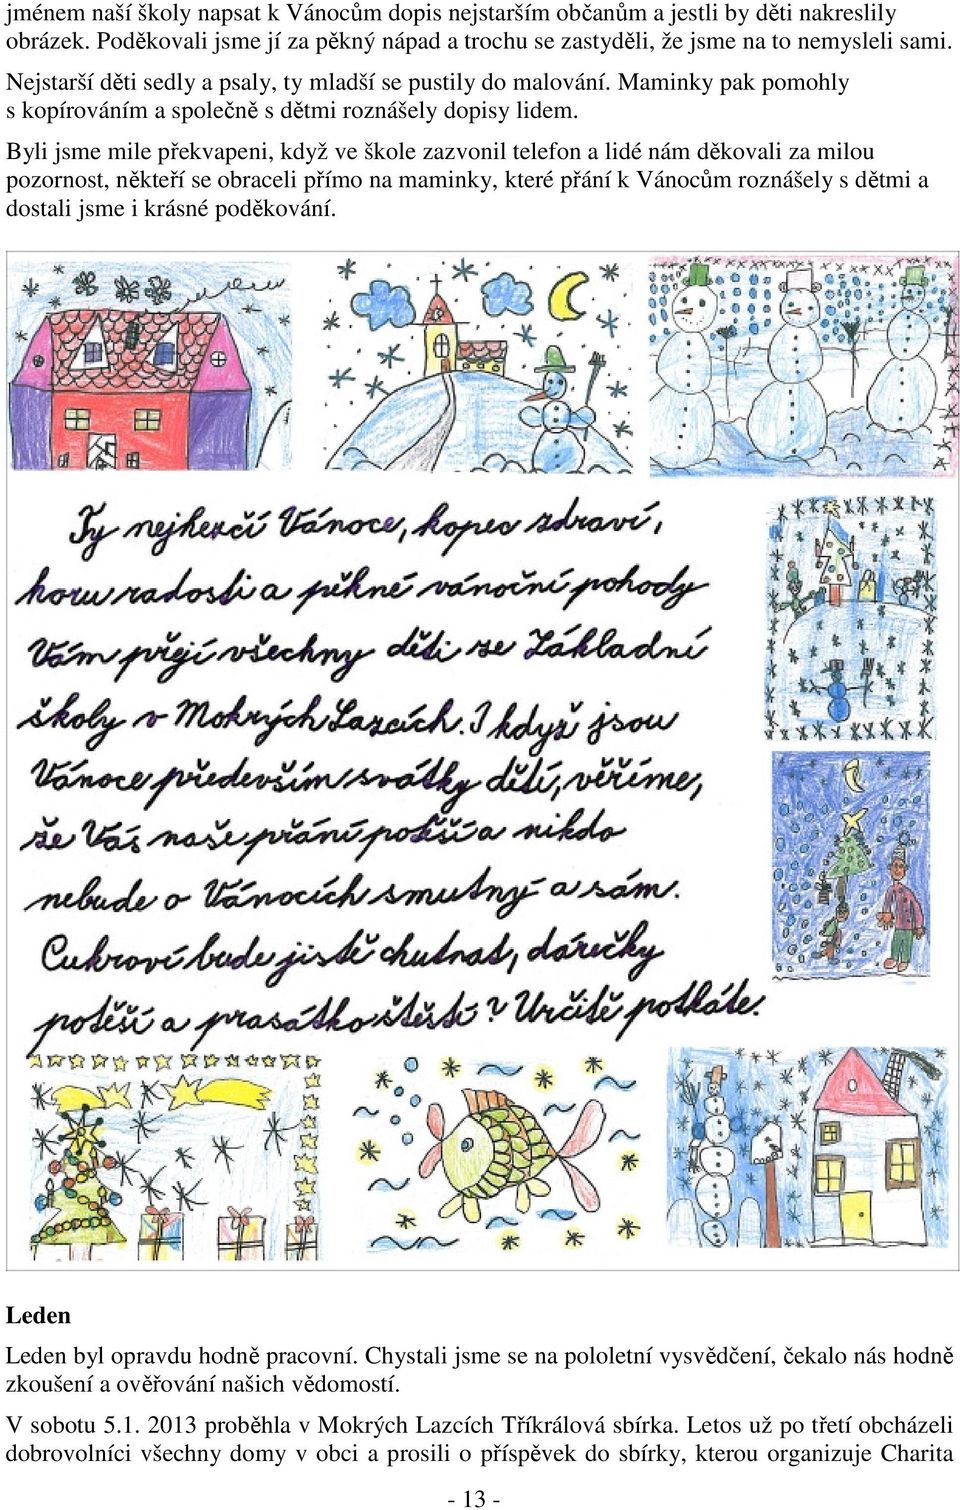 jménem naší školy napsat k Vánocům dopis nejstarším občanům a jestli by děti nakreslily
obrázek. Poděkovali jsme jí za pěkný nápad a trochu se zastyděli, že jsme na to nemysleli sami.
Nejstarší děti sedly a psaly, ty mladší se pustily do malování. Maminky pak pomohly
s kopírováním a společně s dětmi roznášely dopisy lidem.
Byli jsme mile překvapeni, když ve škole zazvonil telefon a lidé nám děkovali za milou
pozornost, někteří se obraceli přímo na maminky, které přání k Vánocům roznášely s dětmi a
dostali jsme i krásné poděkování.
Ty nejhezčí Vánoce, kopec zdraví,
horu radosti a pěkné vánoční pohody
Vám přejí všechny děti ze Základní
školy v Mokrých Lazcích. I když jsou
Vánoce především svátky dětí, věříme,
že Vás naše přání potěší a nikdo
nebude o Vánocích smutný a sám.
Cukroví bude jistě chutnat, dárečky
potěší a prasátko štěstí? Určitě potkáte.
Leden
Leden byl opravdu hodně pracovní. Chystali jsme se na pololetní vysvědčení, čekalo nás hodně
zkoušení a ověřování našich vědomostí.
V sobotu 5.1. 2013 proběhla v Mokrých Lazcích Tříkrálová sbírka. Letos už po třetí obcházeli
dobrovolníci všechny domy v obci a prosili o příspěvek do sbírky, kterou organizuje Charita
- 13 -